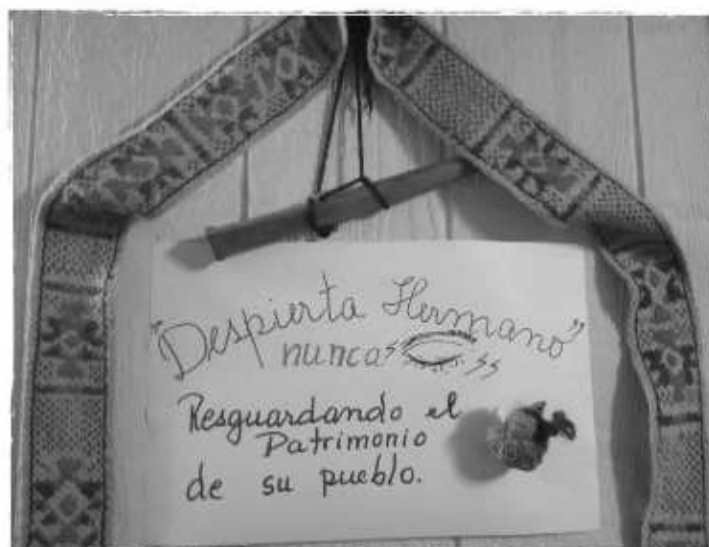 "Despierta Hermano"
nunca
Resguardando el
Patrimonio
de su pueblo.